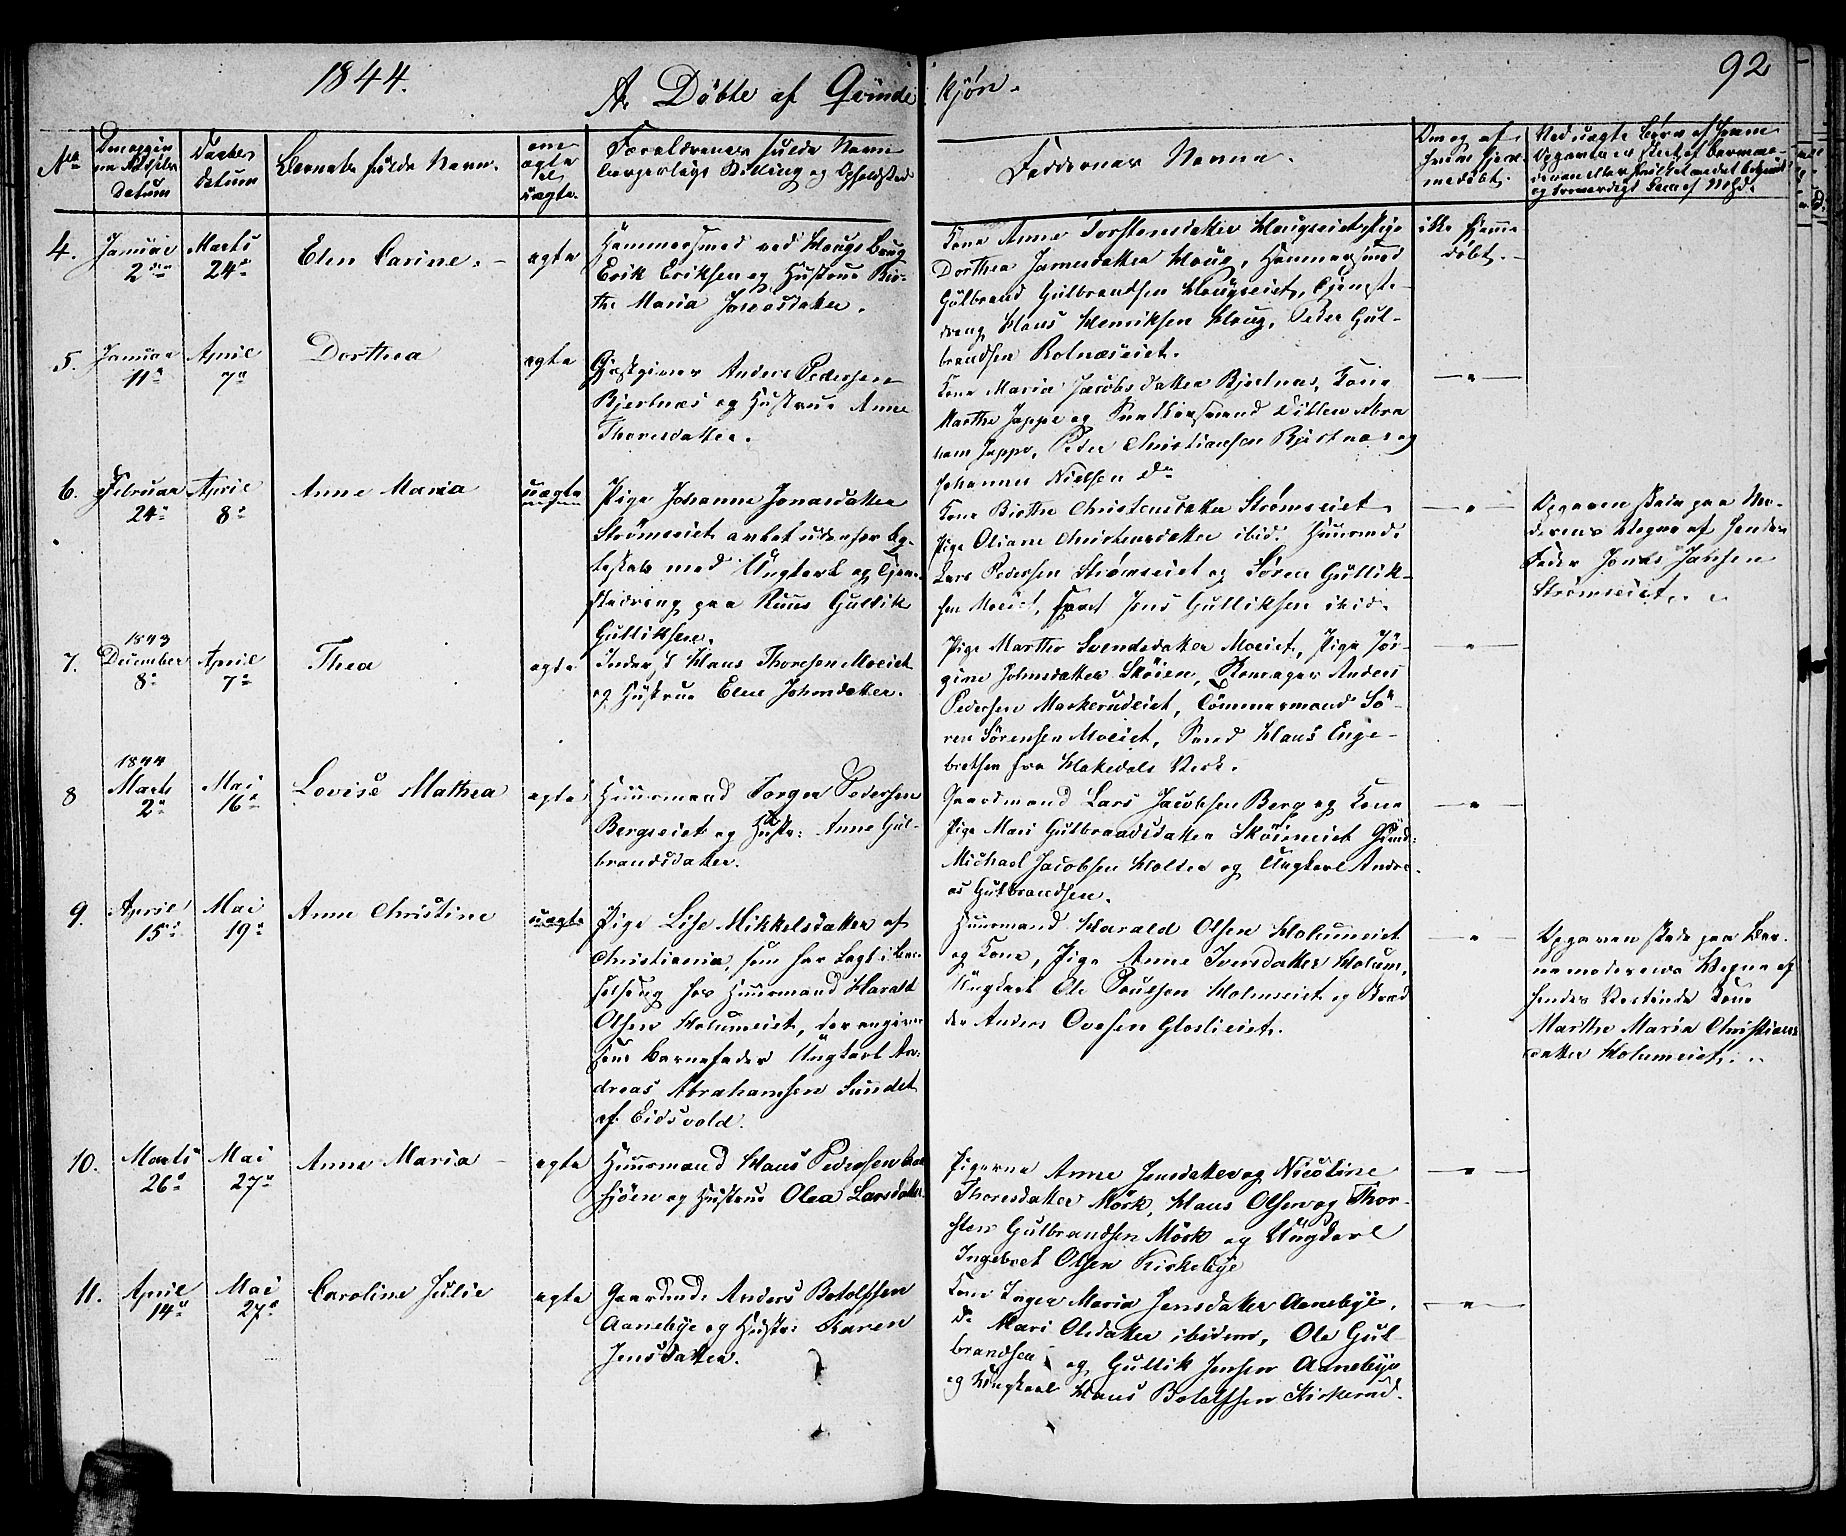 1844.
A. Döbte af Qvinde kjön.
92
No
Daabs Datum
Barnets fulde Navn.
om ægte el. uægte.
Forældrenes fulde Navn
borgerlige Stilling og Opholdsted
Faddernes Navne.
4.
Januar 2den
Marts 24de
Elen Carine.
ægte
Hammersmed ved Hougs Brug
Erik Eriksen og Hustrue Bir-
the Maria Jonasdatter.
Kone Anne Torstensdatter Hougseiet, Pige
Dorthea Jansdatter Houg, Hammersmed
Gulbrand Gulbrandsen Hougseiet, Tjeneste-
dreng Hans Henriksen Houg, Peder Gul-
brandsen Rotnæseiet.
ikke hjemme
döbt.
5.
Januar 11te
April 7de
Dorthea
ægte
Gjæstgiver Anders Pedersen
Bjertnæs og Hustrue Anne
Thoresdatter.
Kone Maria Jacobsdatter Bjertnæs, Kone
Marthe Jappe og
ham Jappe, Peder Christiansen Bjertnæs og
Johannes Nielsen Do
6.
Februar 24de
April 8de
Anne Maria
uægte
Pige Johanne Jonasdatter
Strömseiet avlet udenfor Eg-
teskab med Ungkarl og Tjene-
stedreng paa Ruus Gullik
Gulliksen.
Kone Birthe Christensdatter Strömseiet,
Pige Oliane Christensdatter ibid. Huusmd.
Lars Pedersen Strömseiet og Sören Gullik-
sen Moeiet, samt Jens Gulliksen ibid.
Opgaven skede paa Mo-
derens Vegne af hendes
Fader Jonas Jansen
Strömseiet.
7.
1843
December 8de
April 7de
Thea
ægte
Inders. Hans Thoresen Moeiet
og Hustrue Elen Johnsdatter.
Pige Marthe Svendsdatter Moeiet, Pige Jör-
gine Johnsdatter Sköien, Skomager Anders
Pedersen Markerudeiet, Tömmermand Sö-
ren Sörensen Moeiet, Smed Hans Enge-
bretsen fra Hakedals Verk.
8
1844
Marts 2de
Mai 16de
Lovise Mathea
ægte
Huusmand Torger Pedersen
Bergseiet og Hustr: Anne Gul-
brandsdatter.
Gaardmand Lars Jacobsen Berg og Kone
Pige Mari Gulbrandsdatter Sköieneiet
Michael Jacobsen Holter og Ungkarl Andre-
as Gulbrandsen.
9.
April 15de
Mai 19de
Anne Christine
uægte
Pige Lise Mikkelsdatter af
Christiania, som har lagt i Bar-
selseng hos Huusmand Harald
Olsen Holumeiet, der angiver
som Barnefader Ungkarl An-
dreas Abrahamsen Sundet
af Eidsvold.
Huusmand Harald Olsen Holumeiet
og Kone, Pige Anne Iversdatter Holum,
Ungkarl Ole Poulsen Holmseiet og
Anders Ovesen Gloslieiet.
Opgaven skede paa Bar-
nemoderens Vegne af
hendes Vertinde Kone
Marthe Maria Christians
datter Holumeiet.
10.
Marts 26de
Mai 27de
Anne Maria
ægte
Huusmand Hans Pedersen
og Hustrue Olea Larsdatter
Pigerne Anne Jensdatter og Nicoline
Thoresdatter Mörk, Hans Olsen og Thor-
sten Gulbrandsen Mörk og Ungkarl
Ingebret Olsen Kirkebye
11.
April 14de
Mai 27de
Caroline Julie
ægte
Gaardmd: Anders Botolfsen
Aanebye og Hustr: Karen
Jensdatter.
Kone Inger Maria Jensdatter Aanebye,
Do Mari Olsdatter ibidem, Ole Gul-
brandsen og Gullik Jensen Aanebye
og Ungkarl Hans Botolfsen Kirkerud.